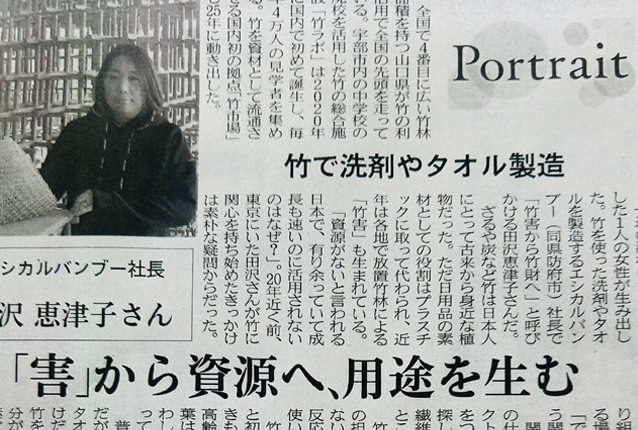 Portrait
全国で4番目に広い竹林
面積を持つ山口県が竹の利
活用で全国の先頭を走って
いる。宇部市内の中学校の
廃校を活用した竹の総合施
設「竹ラボ」は2020年
に国内で初めて誕生し、毎
年4万人の見学者を集め
る。竹を資材として流通さ
せる国内初の拠点「竹市場」
も25年に動き出した。
竹で洗剤やタオル製造
した1人の女性が生み出し
た。竹を使った洗剤やタオ
ルを製造するエシカルバン
ブー（同県防府市）社長で
「竹害から竹財へ」と呼び
かける田沢恵津子さんだ。
ざるや炭など竹は日本人
にとって古来から身近な植
物だった。ただ日用品の素
材としての役割はプラスチ
ックに取って代わられ、近
年は各地で放置竹林による
「竹害」も生まれている。
「資源がないと言われる
日本で、有り余っていて成
長も速いのに活用されない
のはなぜ？」。20年近く前、
東京にいた田沢さんが竹に
関心を持ち始めたきっかけ
は素朴な疑問からだった。
シカルバンブー社長
沢 恵津子さん
「害」から資源へ、用途を生む